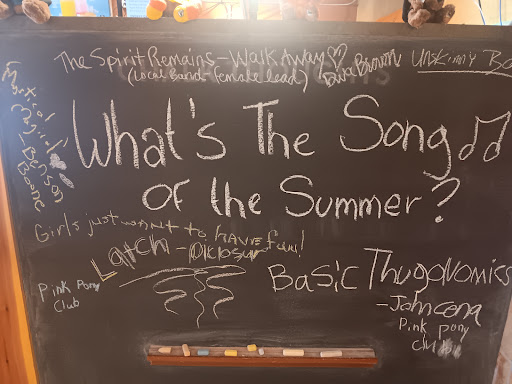 The Spirit Remains - Walk Away ♡
(Local Band - female lead)
Unskinny Bo
Mystical
Magical
- Benson
Boone
What's The Song
of the Summer?
Girls just want to have fun!
Latch - Disclosur
Pink Pony
Club
Basic Thugonomics
- John cena
Pink pony
club